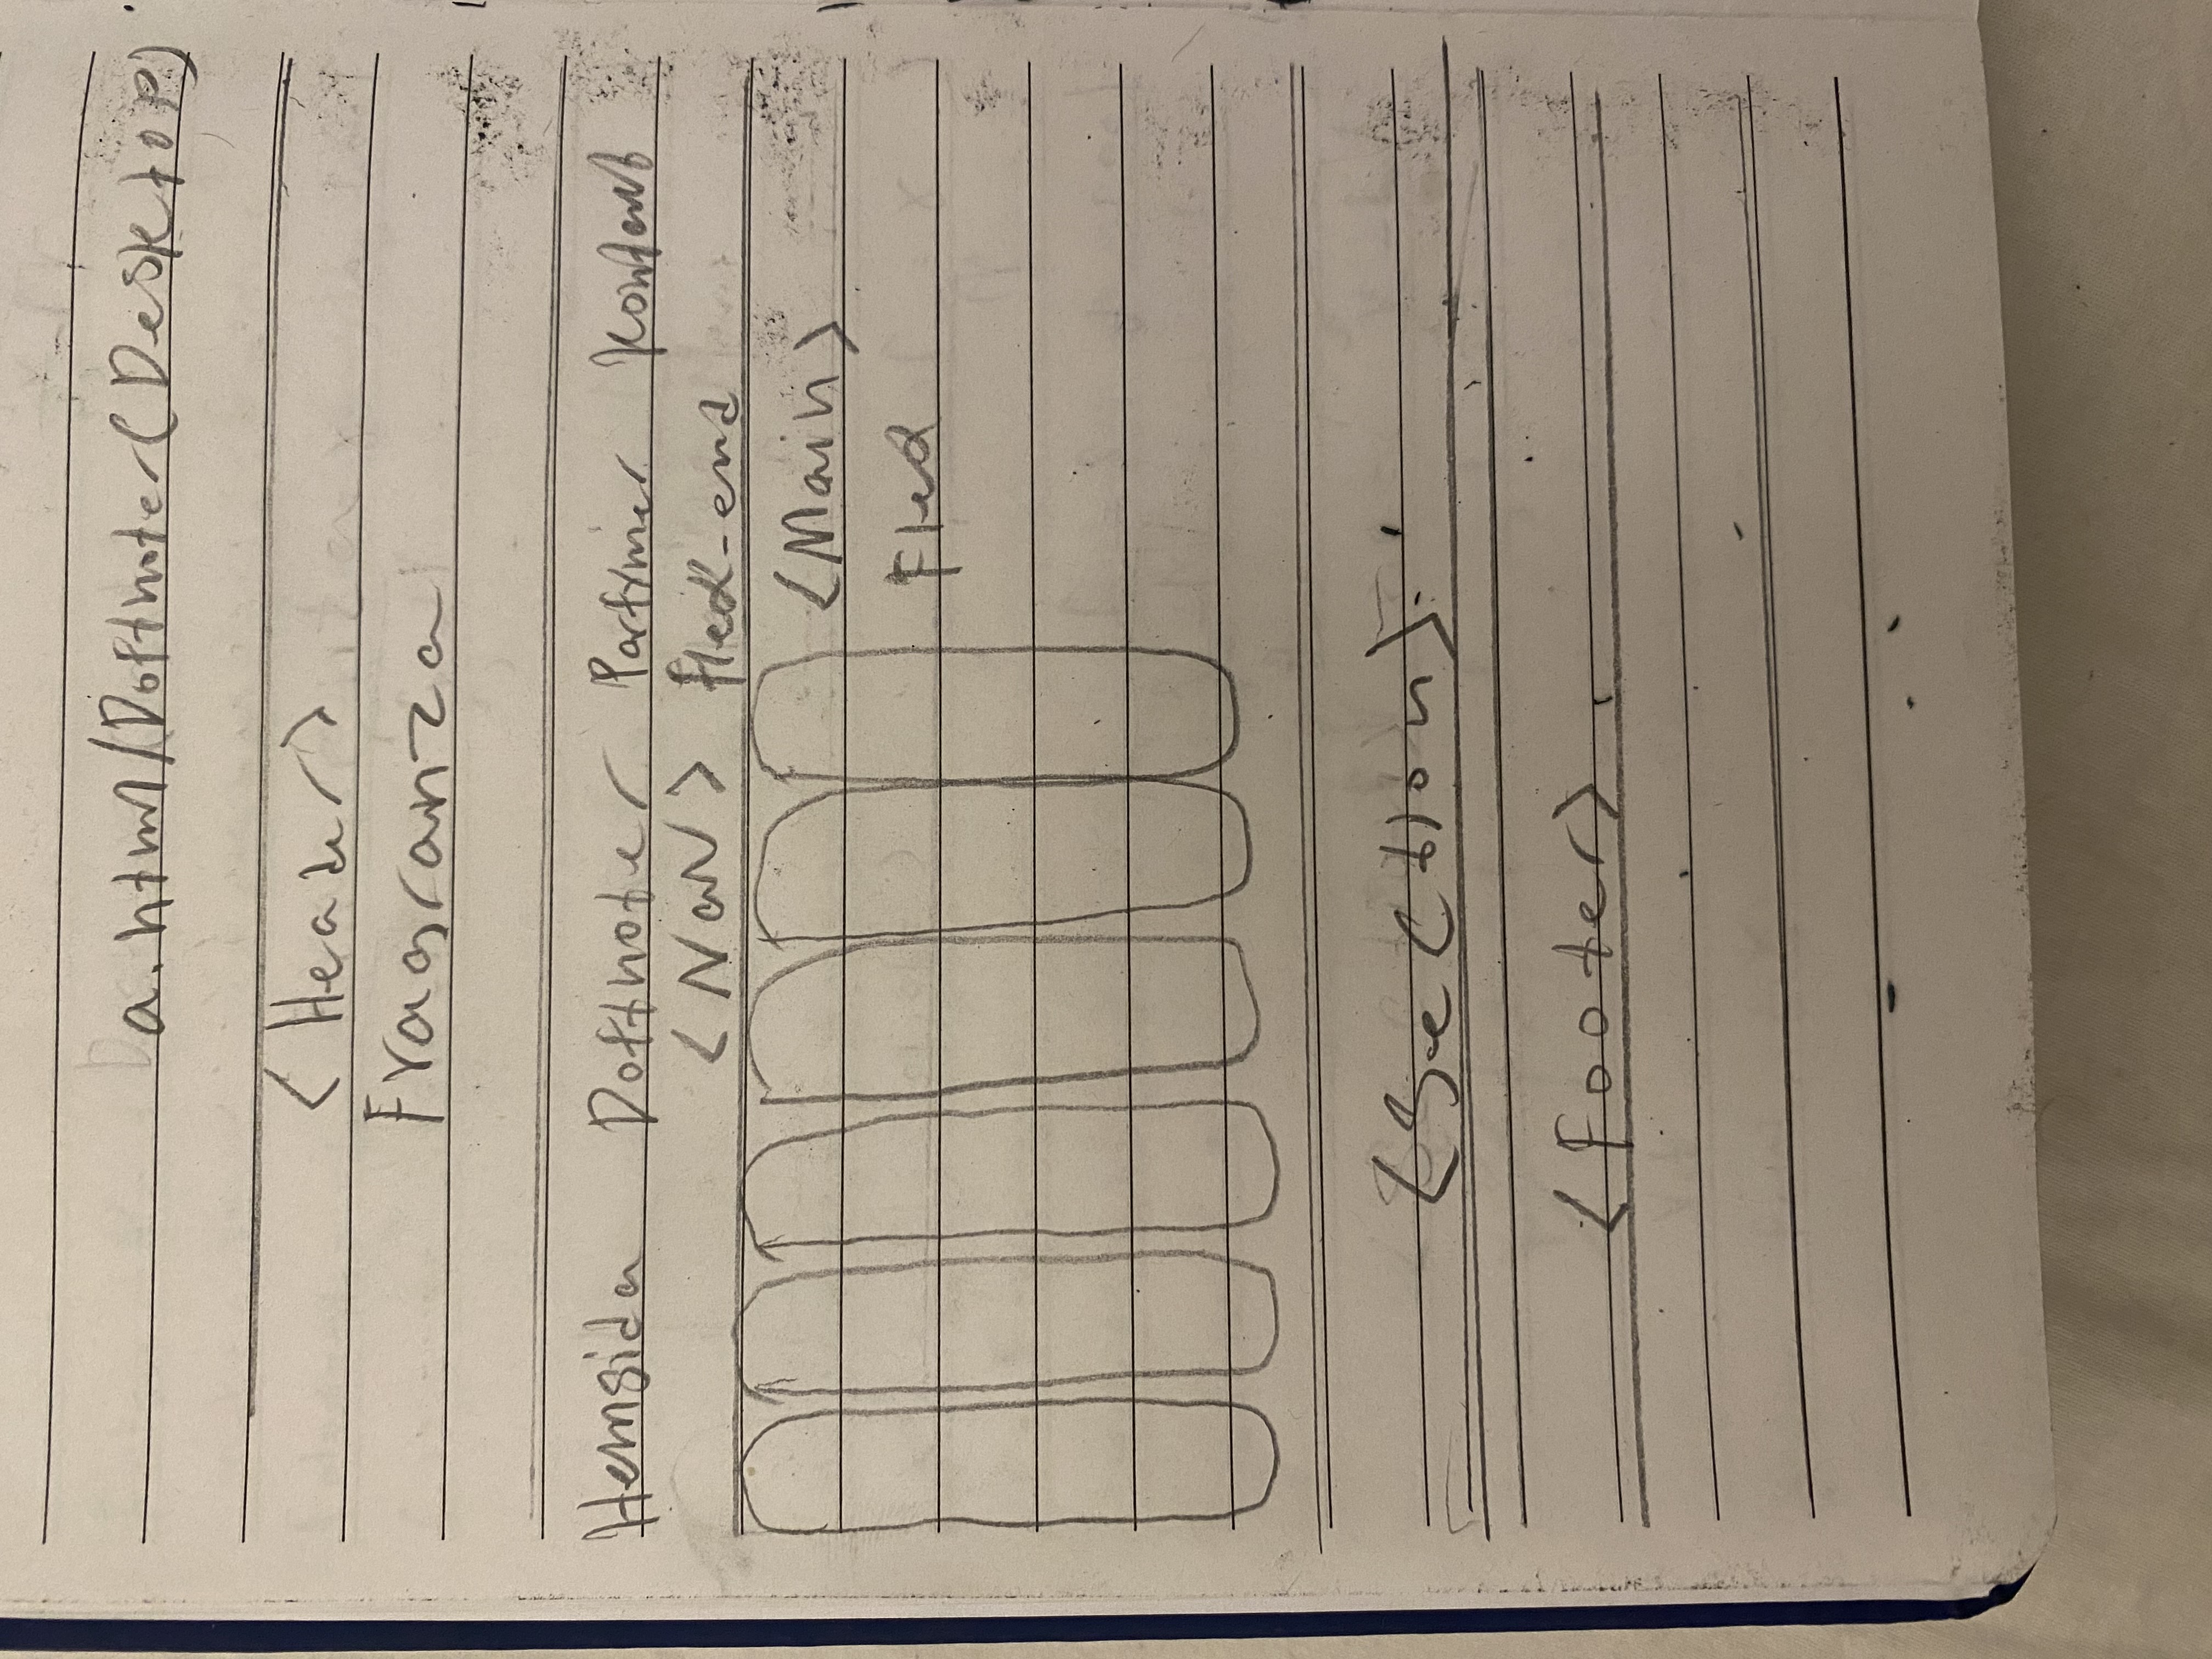 a.html/Doftnoter(Desktop)
<Header>
Fragranza
Hemsida Doftnoter Parfymer Kontakt
<Nav> flex-end
<Main>
Flex
<Section>
<Footer>